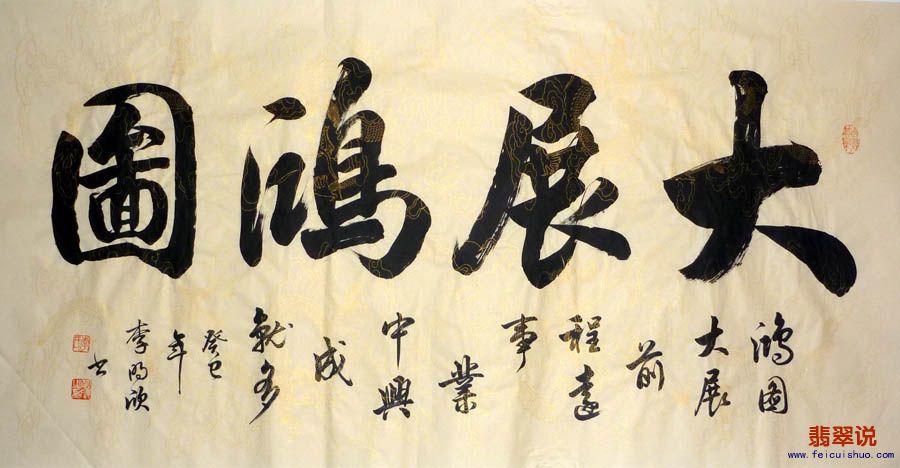 大展鴻圖
鴻圖
大展
前
程遠
事
業
中興
成
就多
癸巳
年
書
翡翠说
www.feicuishuo.com